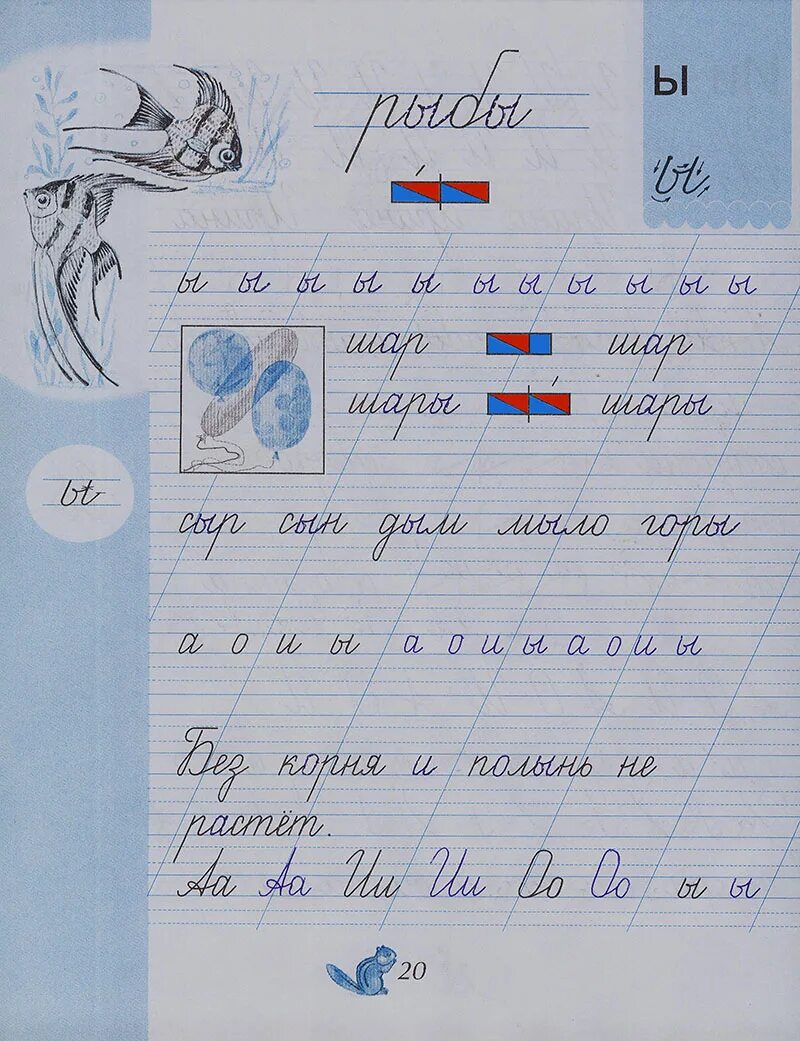 рыбы
ы
ы
ы ы ы ы ы ы ы ы ы ы ы
шар шар
шары шары
ы
сыр сын дым мыло горы
а о и ы а о и ы а о и ы
Без корня и полынь не
растёт.
Аа Аа Ии Ии Оо Оо ы ы
20